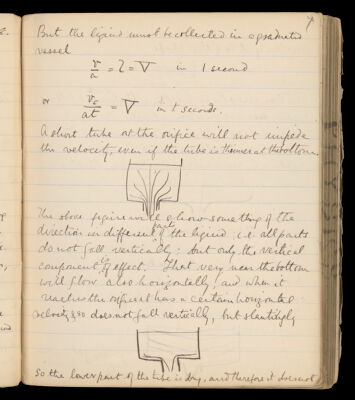 7
But the liquid must be collected in a graduated
vessel
v/a = l = V in 1 second
or v/at = V in t seconds.
A short tube at the orifice will not impede
the velocity, even if the tube is thinner at the bottom.
The above figure will show something of the
direction in different parts of the liquid, i.e. all parts
do not fall vertically: but only the vertical
component is of effect. That very near the bottom
will flow also horizontally, and when it
reaches the orifice it has a certain horizontal
velocity & so does not fall vertically, but slantingly
So the lower part of the tube is dry, and therefore it does not